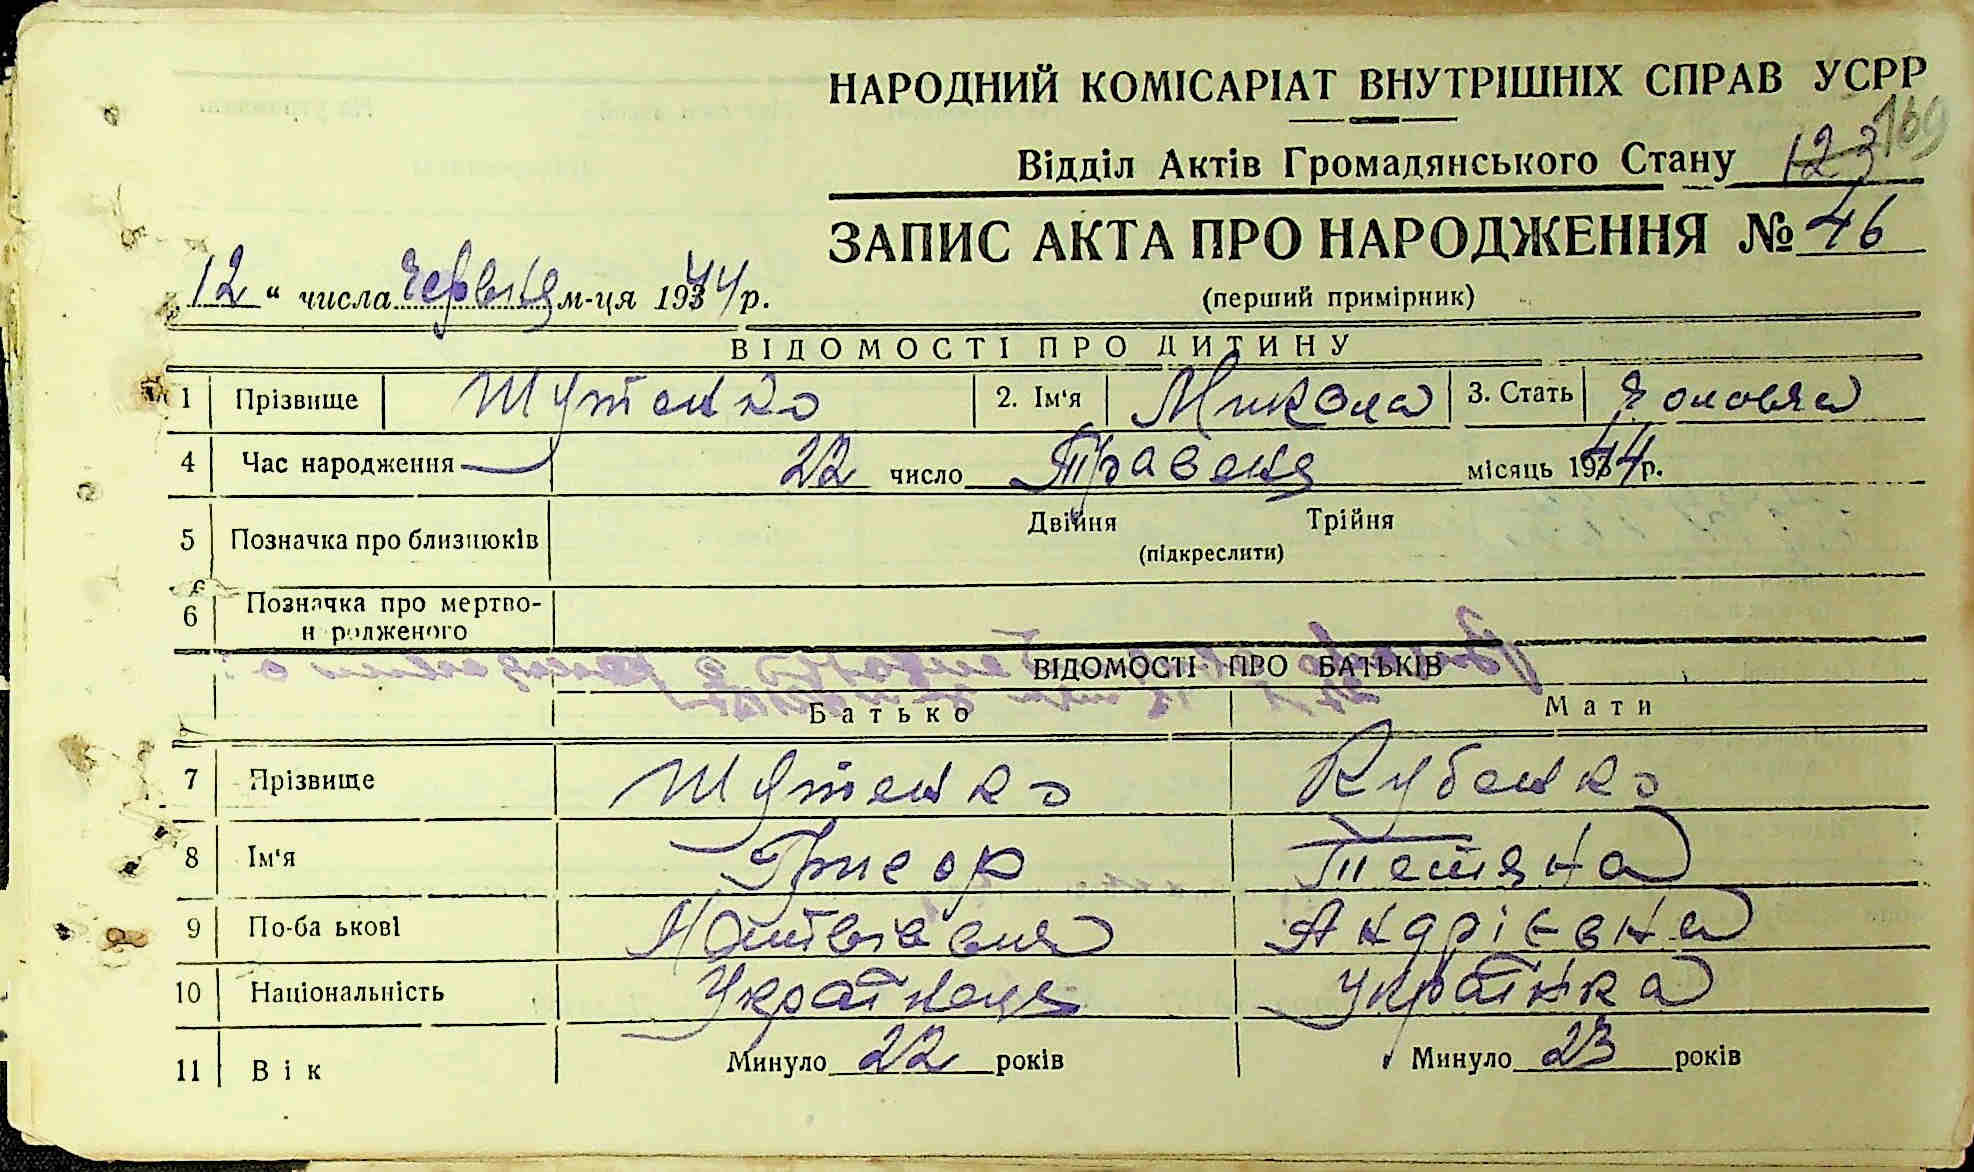 НАРОДНИЙ КОМІСАРІАТ ВНУТРІШНІХ СПРАВ УСРР
169
Відділ Актів Громадянського Стану 123
ЗАПИС АКТА ПРО НАРОДЖЕННЯ № 46
12 " числа червня м-ця 1944 р.
(перший примірник)
ВІДОМОСТІ ПРО ДИТИНУ
1 Прізвище Шутенко 2. Ім'я Микола 3. Стать чоловіча
4 Час народження 22 число Травеня місяць 1944 р.
5 Позначка про близнюків Двійня Трійня
(підкреслити)
6 Позначка про мертво-
н родженого
ВІДОМОСТІ ПРО БАТЬКІВ
Батько Мати
7 Прізвище Шутенко Кубенко
8 Ім'я Григор Тетяна
9 По-ба ькові Андрієвна
10 Національність Українець Українка
11 Вік Минуло 22 років Минуло 23 років